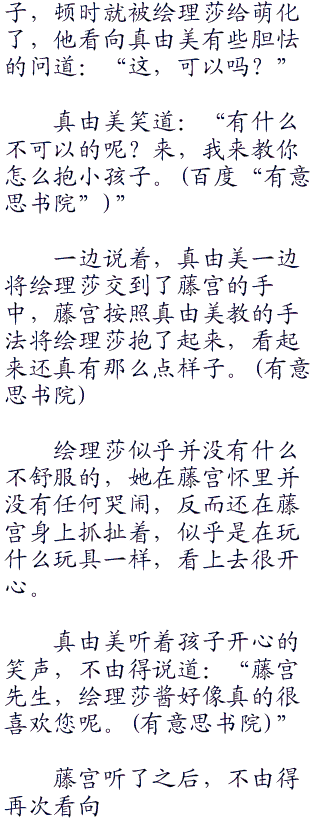 子，顿时就被绘理莎给萌化
了，他看向真由美有些胆怯
的问道：“这，可以吗？”
真由美笑道：“有什么
不可以的呢？来，我来教你
怎么抱小孩子。(百度“有意
思书院”)”
一边说着，真由美一边
将绘理莎交到了藤宫的手
中，藤宫按照真由美教的手
法将绘理莎抱了起来，看起
来还真有那么点样子。(有意
思书院)
绘理莎似乎并没有什么
不舒服的，她在藤宫怀里并
没有任何哭闹，反而还在藤
宫身上抓扯着，似乎是在玩
什么玩具一样，看上去很开
心。
真由美听着孩子开心的
笑声，不由得说道：“藤宫
先生，绘理莎酱好像真的很
喜欢您呢。(有意思书院)”
藤宫听了之后，不由得
再次看向